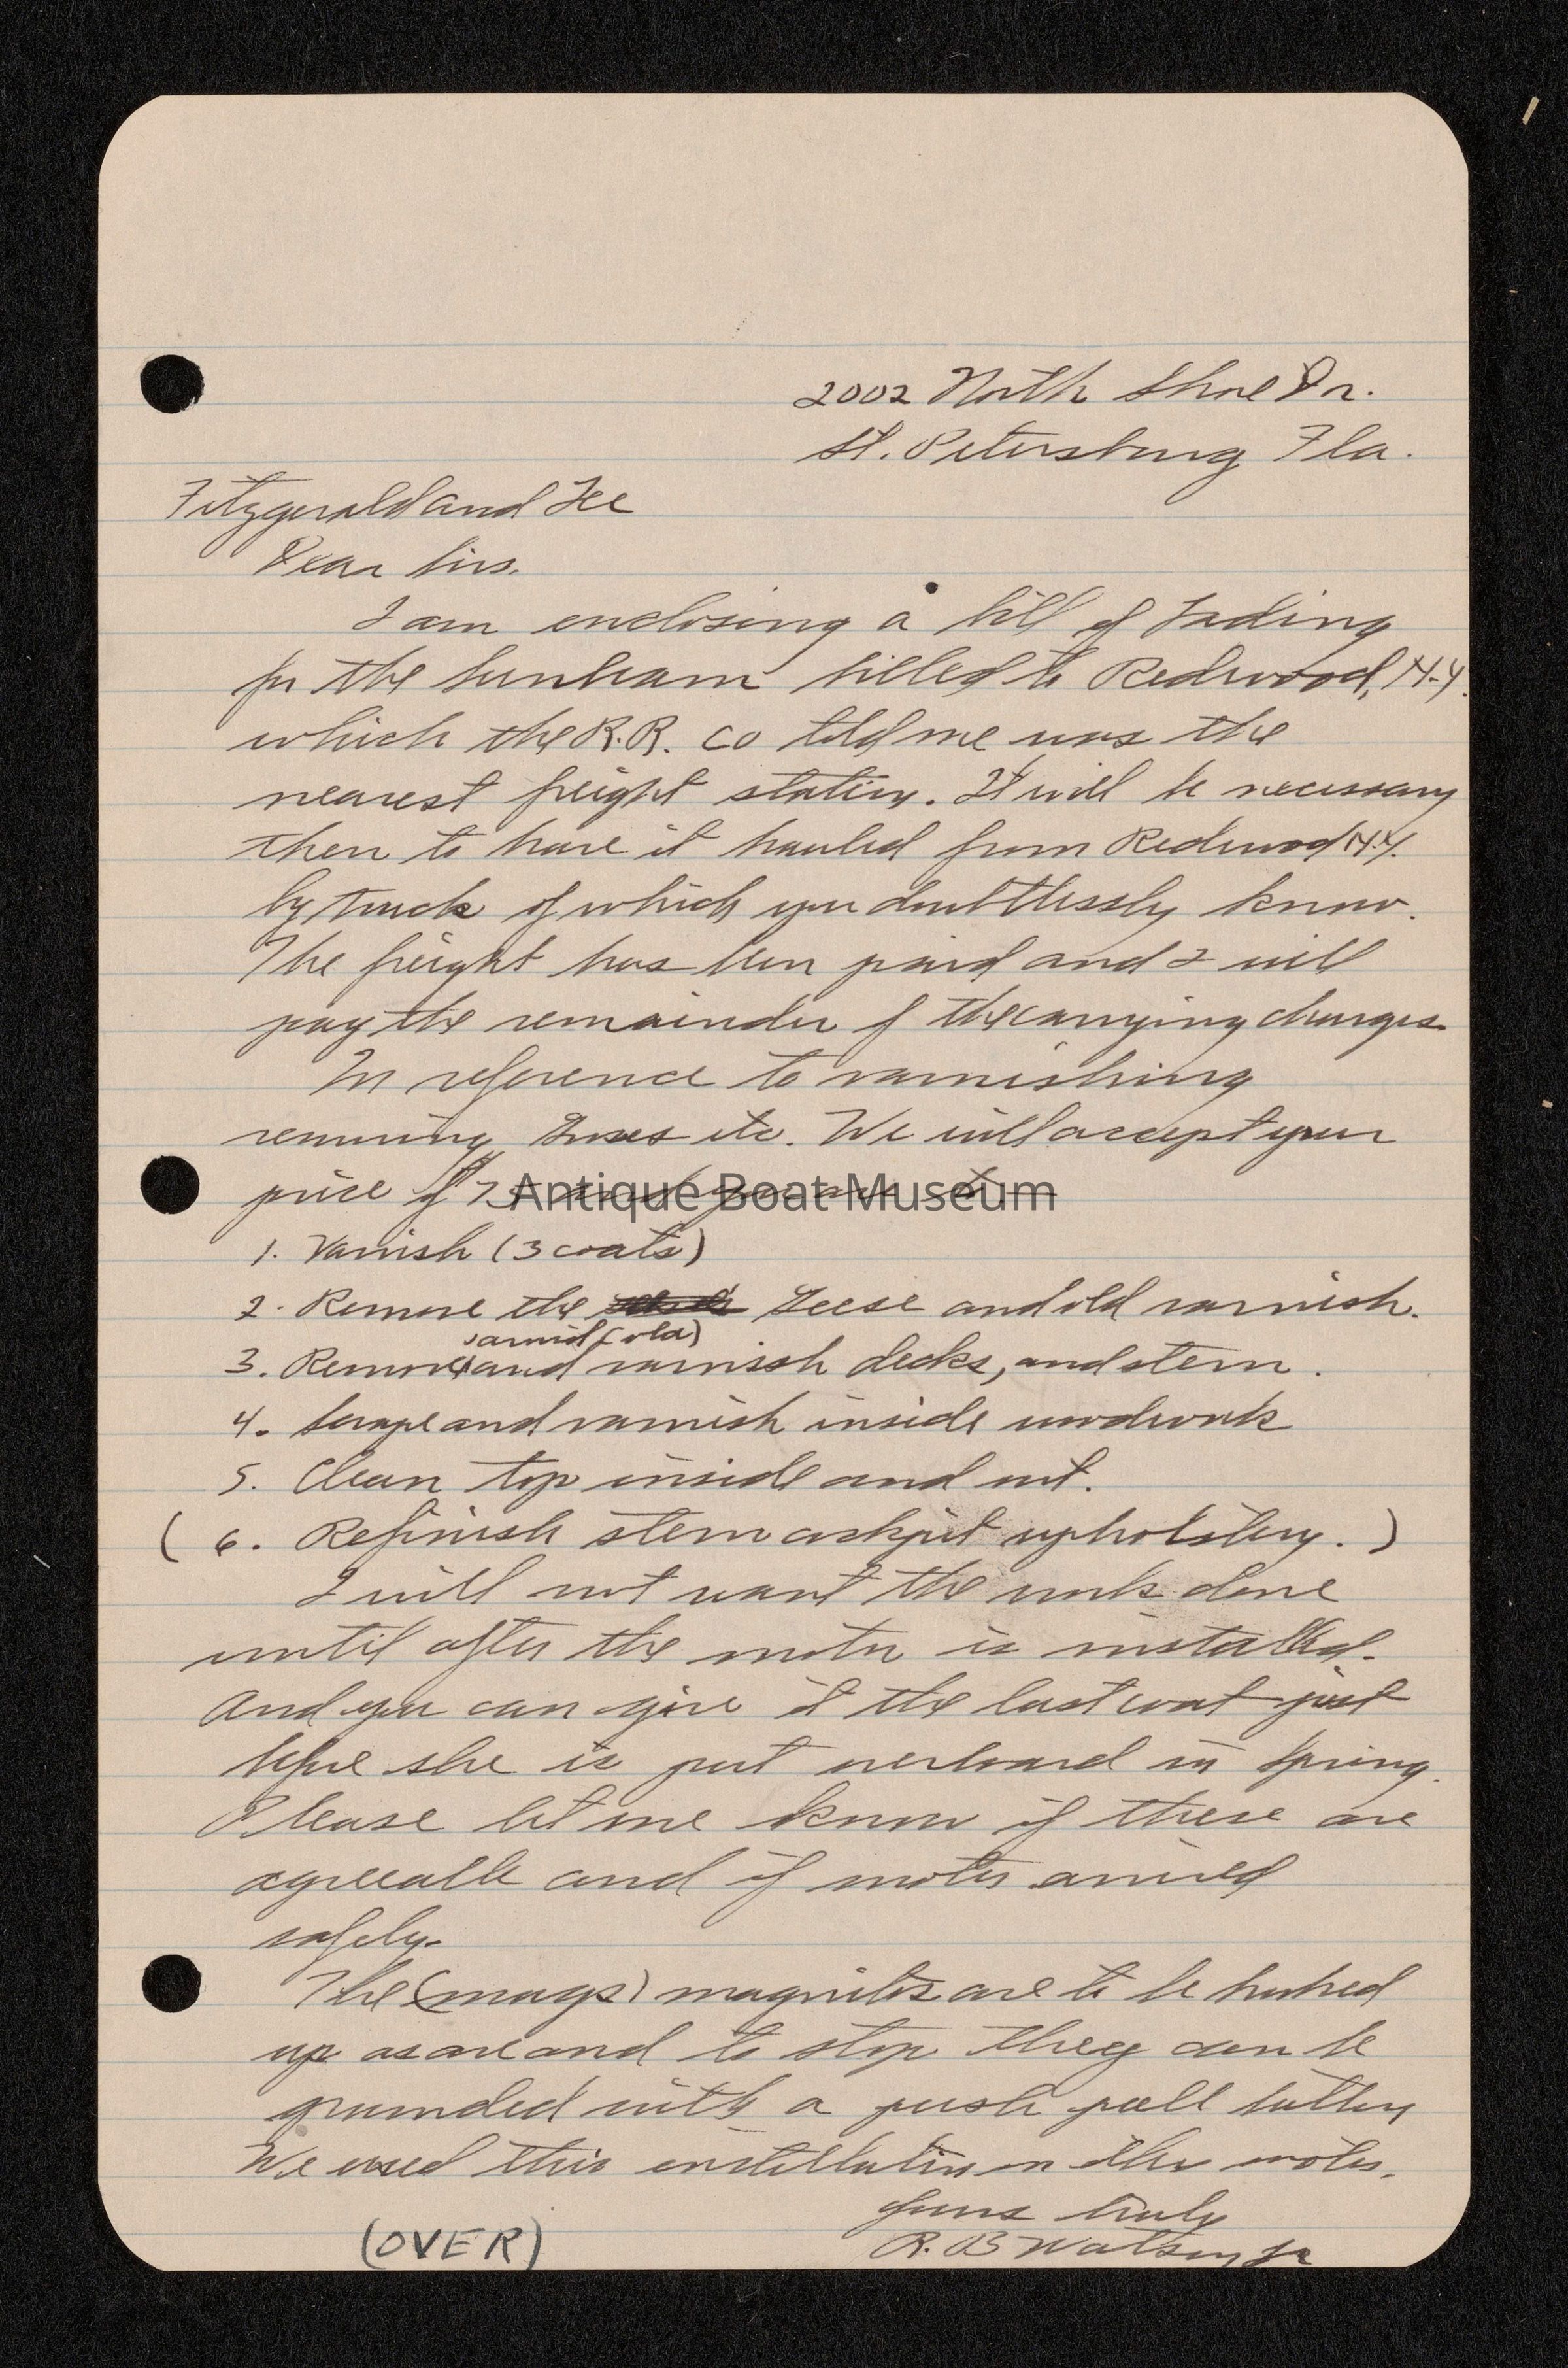 2002 North Shore Dr.
St. Petersburg Fla.
Fitzgerald and Lee
Dear Sirs.
I am enclosing a bill of Lading
for the Sunbeam billed to Redwood, N.Y.
which the R.R. co told me was the
nearest freight station. It will be necessary
then to have it hauled from Redwood N.Y.
by truck of which you doubtlessly know.
The freight has been paid and I will
pay the remainder of the carrying charges.
In reference to varnishing
removing etc. We will accept your
price of 75 and you are to
Antique Boat Museum
1. Varnish (3 coats)
2. Remove the and old varnish.
varnish (old)
3. Remove and varnish decks, and stern.
4. Scrape and varnish inside woodwork
5. Clean top inside and out.
( 6. Refinish stern cockpit upholstery. )
I will not want the work done
until after the motor is installed.
And you can give it the last coat just
before she is put overboard in Spring.
Please let me know if these are
agreeable and if motor arrived
safely.
The (mags) magnitos are to be hooked
up as one and to stop they can be
grounded with a push pull button
We used this installation on other motor.
Yours truly
(OVER)
R. B Watson Jr